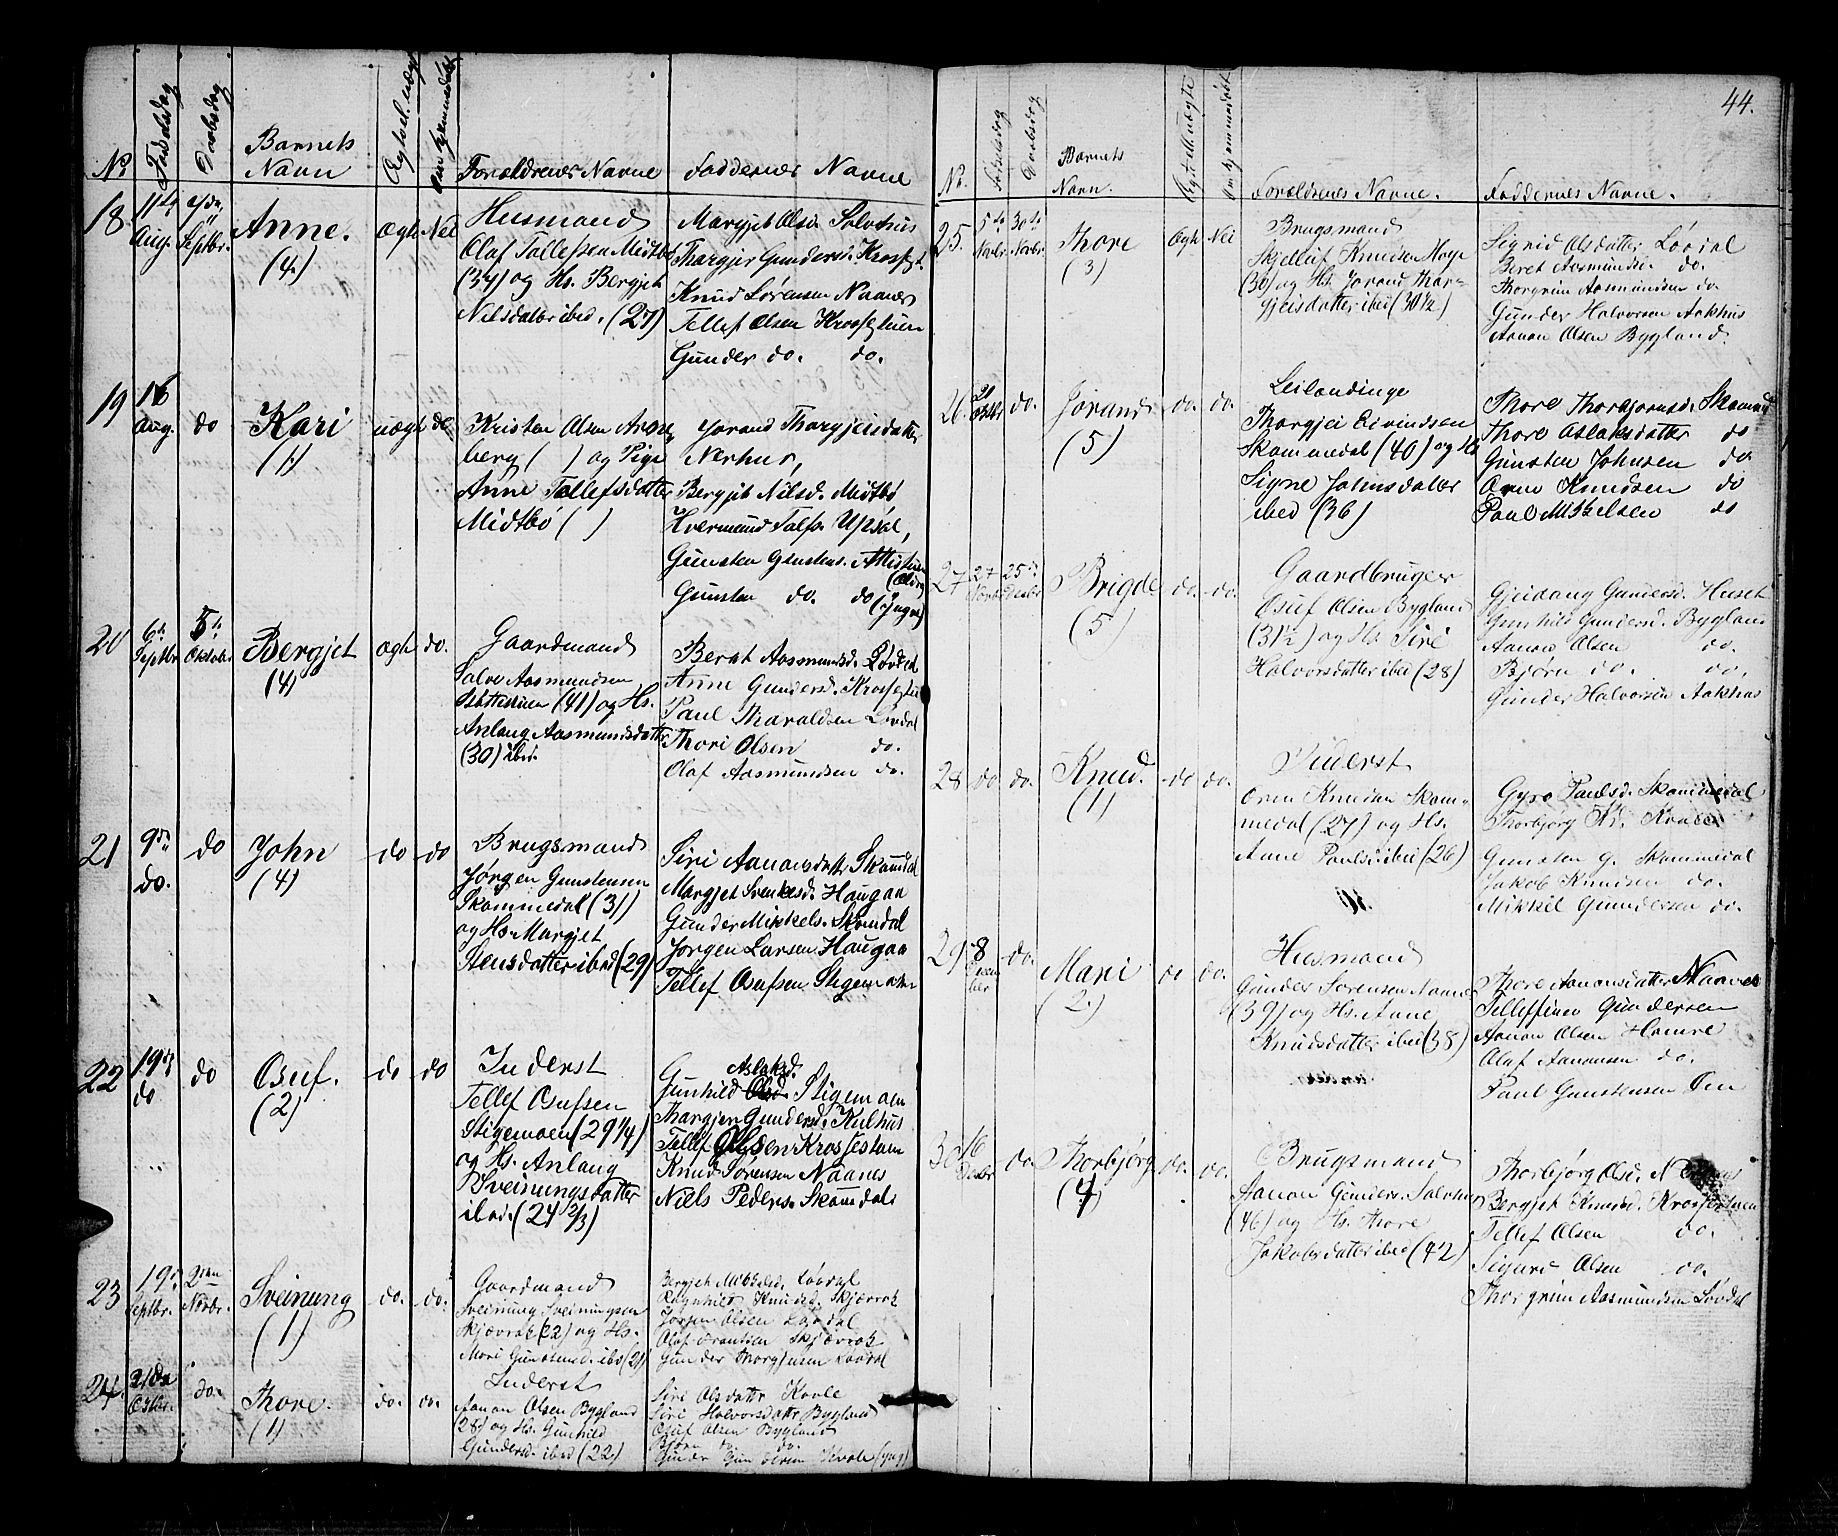 44.
No Fødselsdag Daabsdag Barnets Navn Forældrenes Navne Faddernes Navne
18 11te Aug. 7de Septbr. Anne. (4) Ægte Nei
Husmand
Olaf Tallefsen Midtbø
(34) og Hs. Bergjet
Nilsdatter ibed. (27)
Margjet Olsd. Salvhus
Thargjer Gundersd. Krossetuen
Knud Sørensen Naanes
Tellef Olsen Krossetuen
Gunder do. do.
19 16 Aug. do Kari (1) uægte do
Kristen Olsen
berg ( ) og Pige
Anne Tellefsdatter
Midtbø ( )
Jorand Thorgjeisdatter
Nerhus,
Bergjet Nilsd. Midtbø
Gunsten Gunstens.
Gunsten do. do (Yngre)
20 6te Septbr. 5te Oktobr. Bergjet (4) ægte do.
Gaardmand
Salve Aasmundsen
(41) og Hs.
Anlaug Aasmundsdatter
(30) ibid.
Berat Aasmundsd. Løvdal
Anne Gundersd. Krossetuen
Paul Tharaldsen Løvdal
Thori Olsen do.
Olaf Aasmundsen do.
21 9de do. do John (4) do do
Brugsmand
Jørgen Gunstensen
Skommedal (31)
og Hs. Margjet
Stensdatter ibed (29)
Siri Aanonsdatter Skomdal
Margjet Svenkesd. Haugaa
Gunder Mikkels. Skomdal
Jørgen Larsen Haugaa
Tellef Osufsen Stigemoen
22 19de do do Osuf. (2) do do
Inderst
Tellef Osufsen
Stigemoen (29 1/4)
og Hs. Anlaug
Sveinungsdatter
ibed. (24 2/3)
Aslaksd.
Gunhild Olsd. Stigemoen
Thargjer Gundersd. Kulhus
Tellef Olsen Krossetuen
Knud Sørensen Naanes
Niels Peders. Skomdal
23 19de Septbr. 2den Novbr. Sveinung (1) do. do.
Gaardmand
Sveinung Sveinungsen
Skjævrak (22) og Hs.
Mari Gunstensd. ibed (21)
Bergjet Mikkelsd. Løvdal
Ragnhild Knudsd. Skjævrak
Jørgen Olsen Løvdal
Olaf Skjævrak
Gunder Thorgjusen Løvdal
24. 21de Octbr. do. Thore. (1) do. do.
Inderst
Aanon Olsen Bygland
(28) og Hs. Gunhild
Gundersd. ibed (22)
Siri Olsdatter Kvale
Siri Halvorsdatter Bygland
Osuf Olsen Bygland
Bjørn do. do.
Gunder Gundersen Kvale (yng)
No. Fødselsdag Daabsdag Barnets Navn. Forældrenes Navne. Faddernes Navne.
25. 5te Novbr 30te Novbr. Thore (3) Ægte Nei
Brugsmand
Skjelluf Knudsen Moge
(30) og Hs. Jorand Thor-
gjeisdatter ibed (30 1/2)
Sigrid Olsdatter Løvdal
Beret Aasmundsd. do.
Thorgrim Aasmundsen do
Gunder Halvorsen Aakhus
Aanon Olsen Bygland.
26. 21 Oktbr do. Jorand (5) do. do.
Leilændinge
Thorgjei Eivindsen
Skommedal (40) og Hs
Signe Johnsdatter
ibed (36)
Thore Thorbjørnsd. Skommedal
Thore Aslaksdatter do
Gunsten Johnsen do
Oven Knudsen do
Paul Mikkelsen do
27 27 Novbr 25de Decbr Brigde (5) do. do.
Gaardbruger
Osuf Olsen Bygland
(31 1/2) og Hs. Siri
Halvorsdatter ibed (28)
Gjeidaug Gundersd. Huset
Gunhild Gundersd. Bygland
Aanon Olsen do.
Bjørn do. do.
Gunder Halvorsen Aakhus
28 do do. Knud. (1) do do.
Inderst
Oven Knudsen Skom-
medal (27) og Hs.
Anne Paulsd. ibed (26)
Gyro Paulsd. Skommedal
Thorbjørg
Gunsten G. Skommedal
Jakob Knudsen do.
Mikkel Gundersen do.
29 8 Decem ber do. Mari (2) do do.
Husmand
Gunder Sørensen Naanes
(39) og Hs. Anne
Knudsdatter ibed (38)
Thore Aanonsdatter Naanes
Tellef Gundersen
Aanon Olsen Homre
Olaf Aanonsen do.
Paul Gunstensen
30 16 Decbr do. Thorbjørg (4) do. do.
Brugsmand
Aanon Gunders. Salvhus
(46) og Hs. Thore
Jakobsdatter ibed (42)
Thorbjørg Olsd.
Bergjet Knudsd. Krossetuen
Tellef Olsen do.
Sigurd Olsen do.
Thorgrim Aasmundsen Løvdal